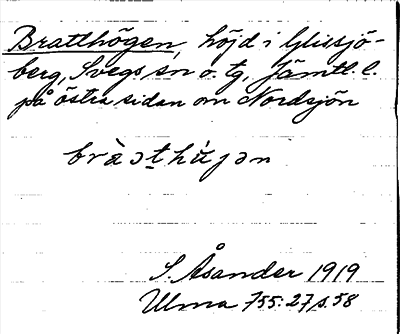 Bratthögen, höjd i Glissjö-
berg, Svegs sn o. tg, Jämtl. l.
på östra sidan om Nordsjön
S. Åsander 1919
Ulma 755:27, s. 58